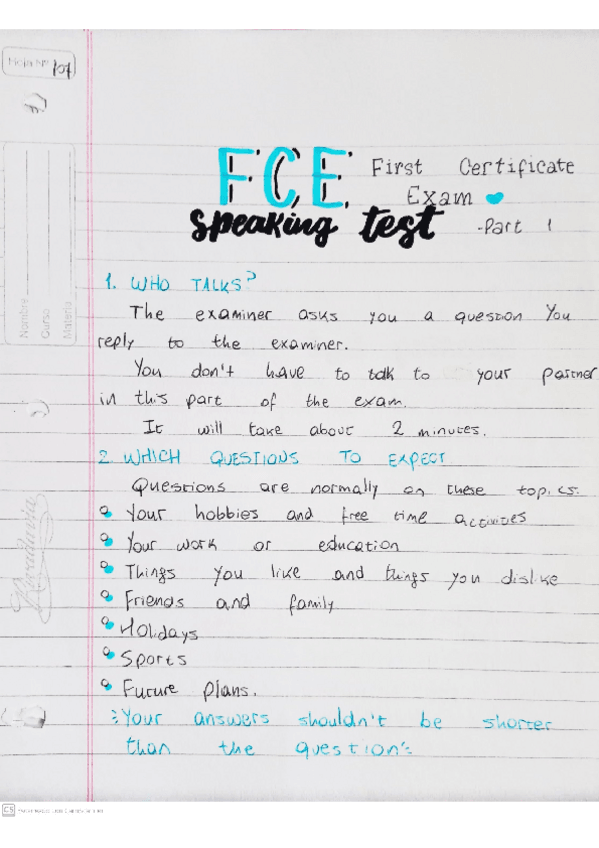 Hoja Nº 107
FCE First Certificate
Exam
Speaking test -Part 1
1. WHO TALKS?
The examiner asks you a question You
reply to the examiner.
You don't have to talk to your partner
in this part of the exam.
It will take about 2 minutes.
2. WHICH QUESTIONS TO EXPECT
Questions are normally on these topics.
Your hobbies and free time activities
Your work or education
Things you like and things you dislike
Friends and family
Holidays
Sports
Future plans.
Your answers shouldn't be shorter
than the question
Nombre
Curso
Materia
CS